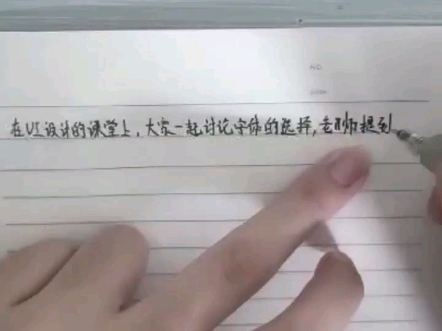 NO
在UI设计的课堂上，大家一起讨论字体的选择，老师提到